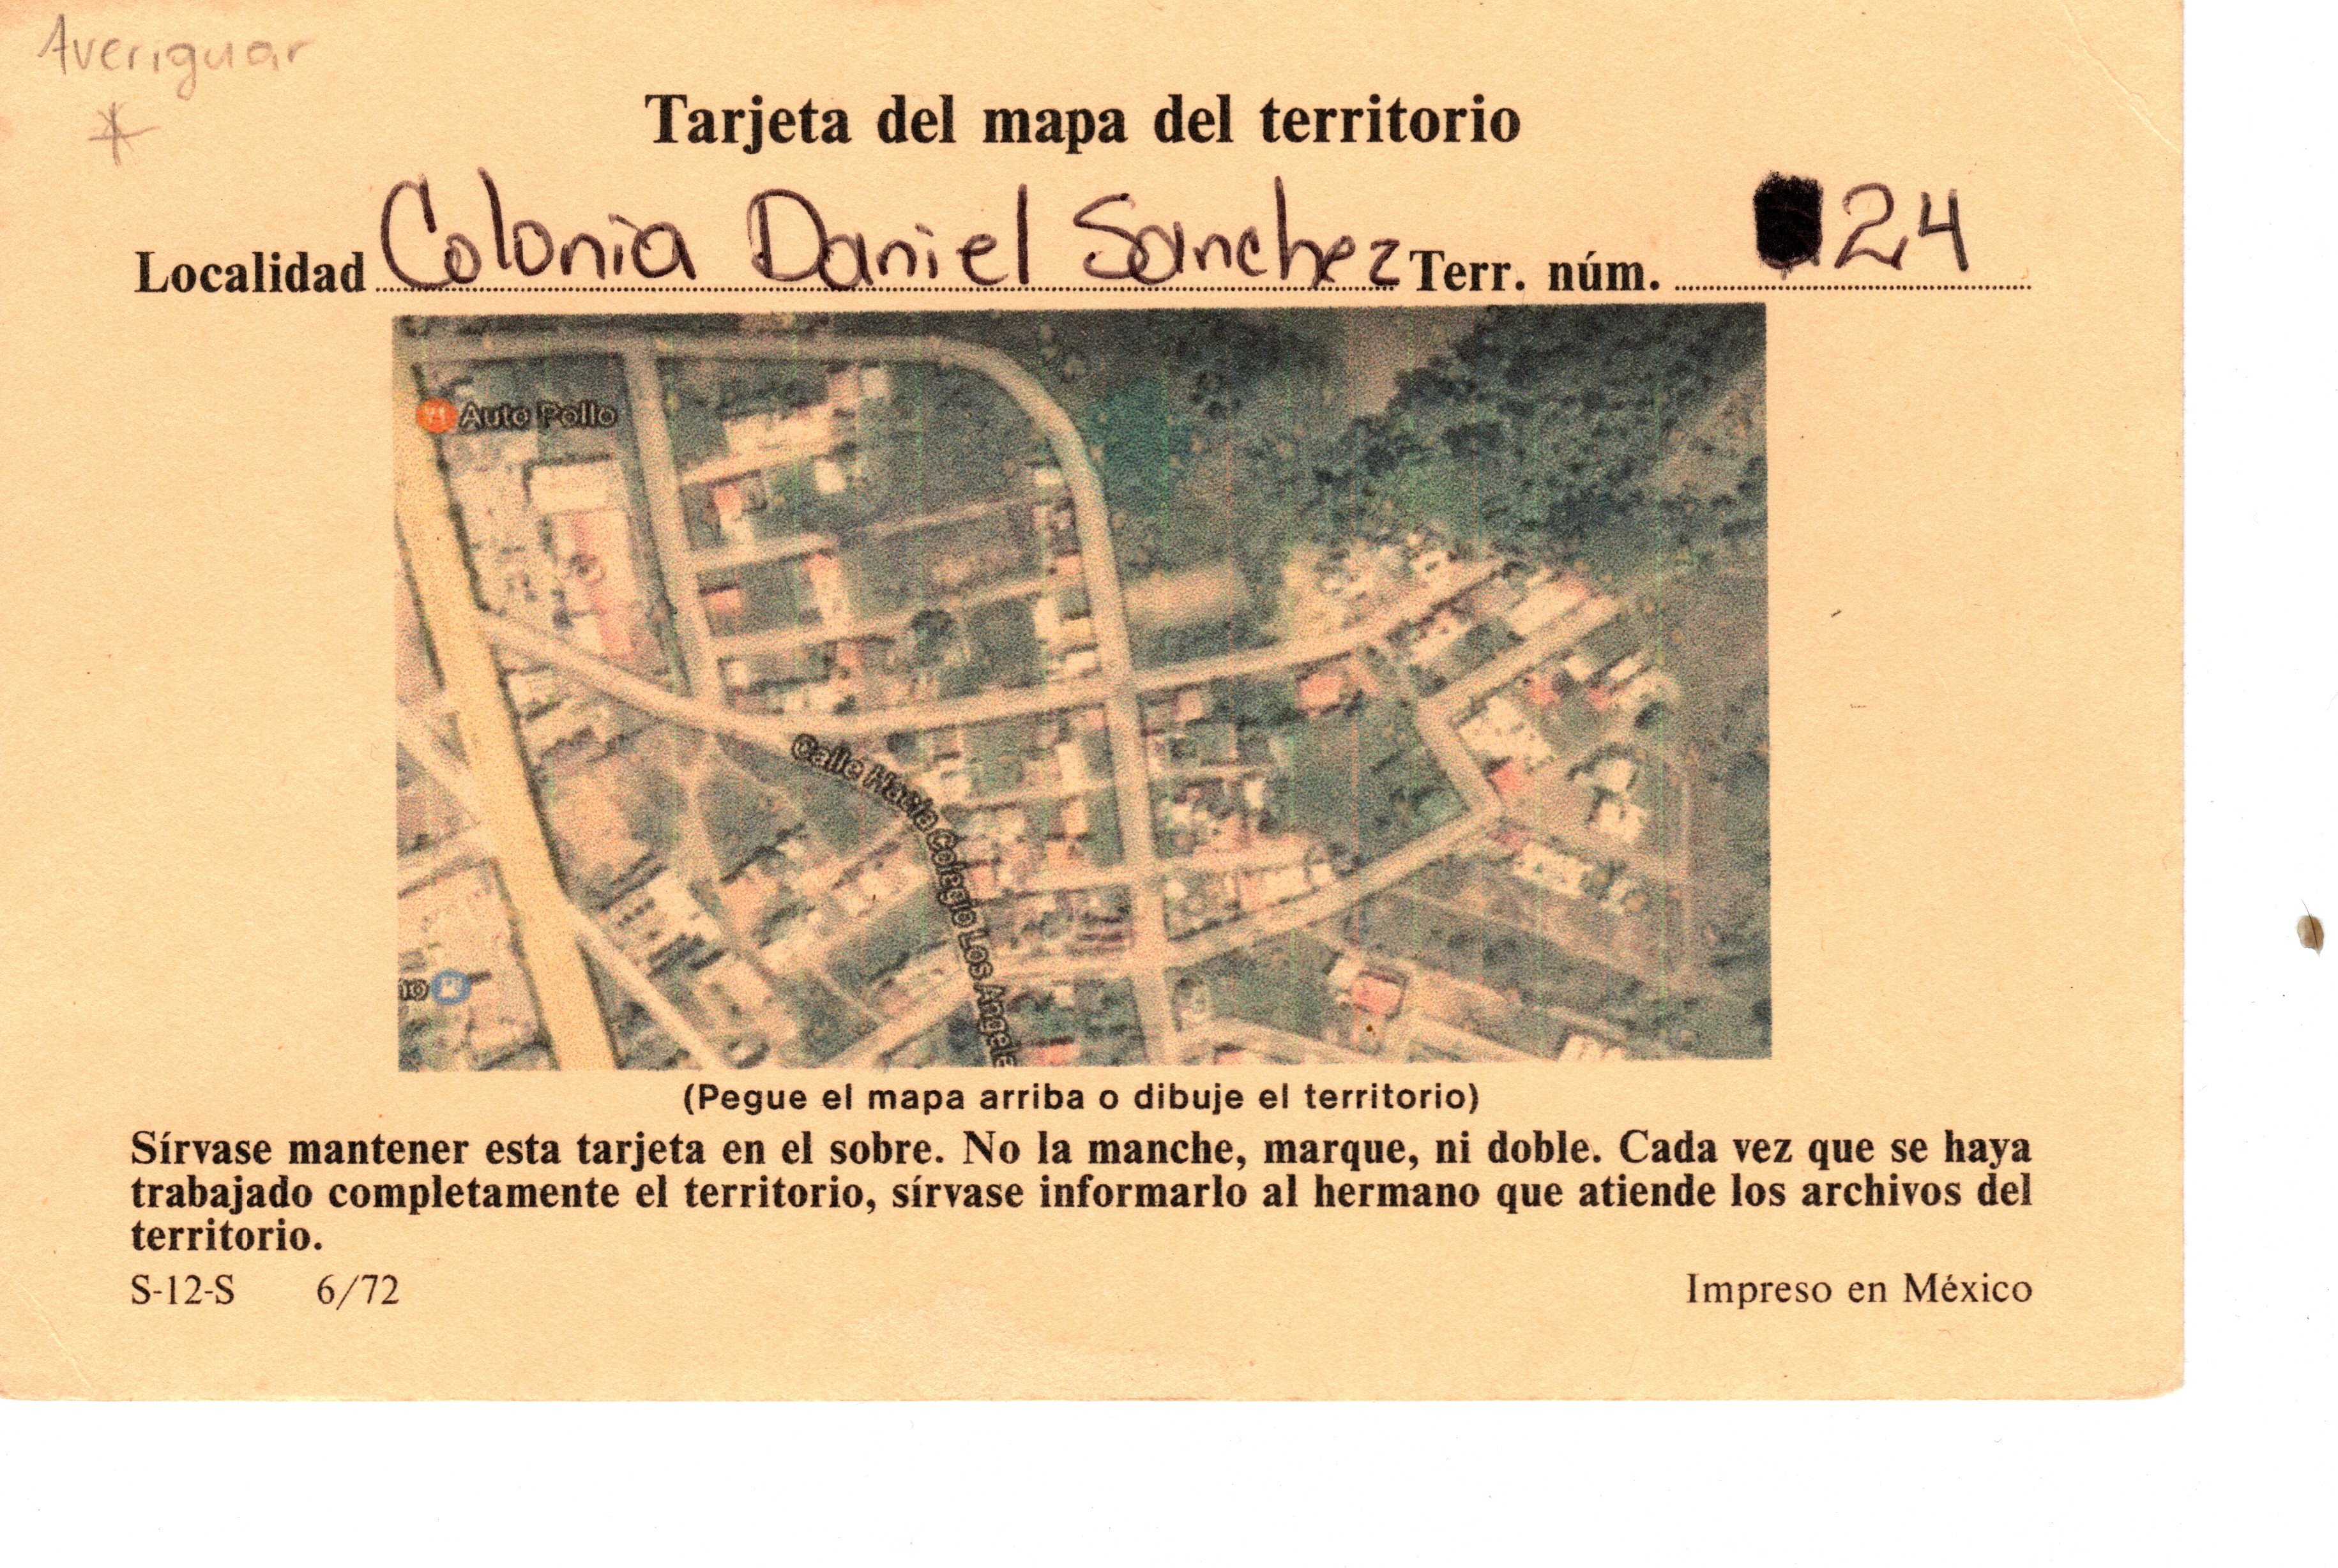 Averiguar
*
Tarjeta del mapa del territorio
Localidad Colonia Daniel Sanchez Terr. núm. 24
Auto Pollo
Calle Hacia Colegio Los Angele
no
(Pegue el mapa arriba o dibuje el territorio)
Sírvase mantener esta tarjeta en el sobre. No la manche, marque, ni doble. Cada vez que se haya
trabajado completamente el territorio, sírvase informarlo al hermano que atiende los archivos del
territorio.
S-12-S 6/72 Impreso en México